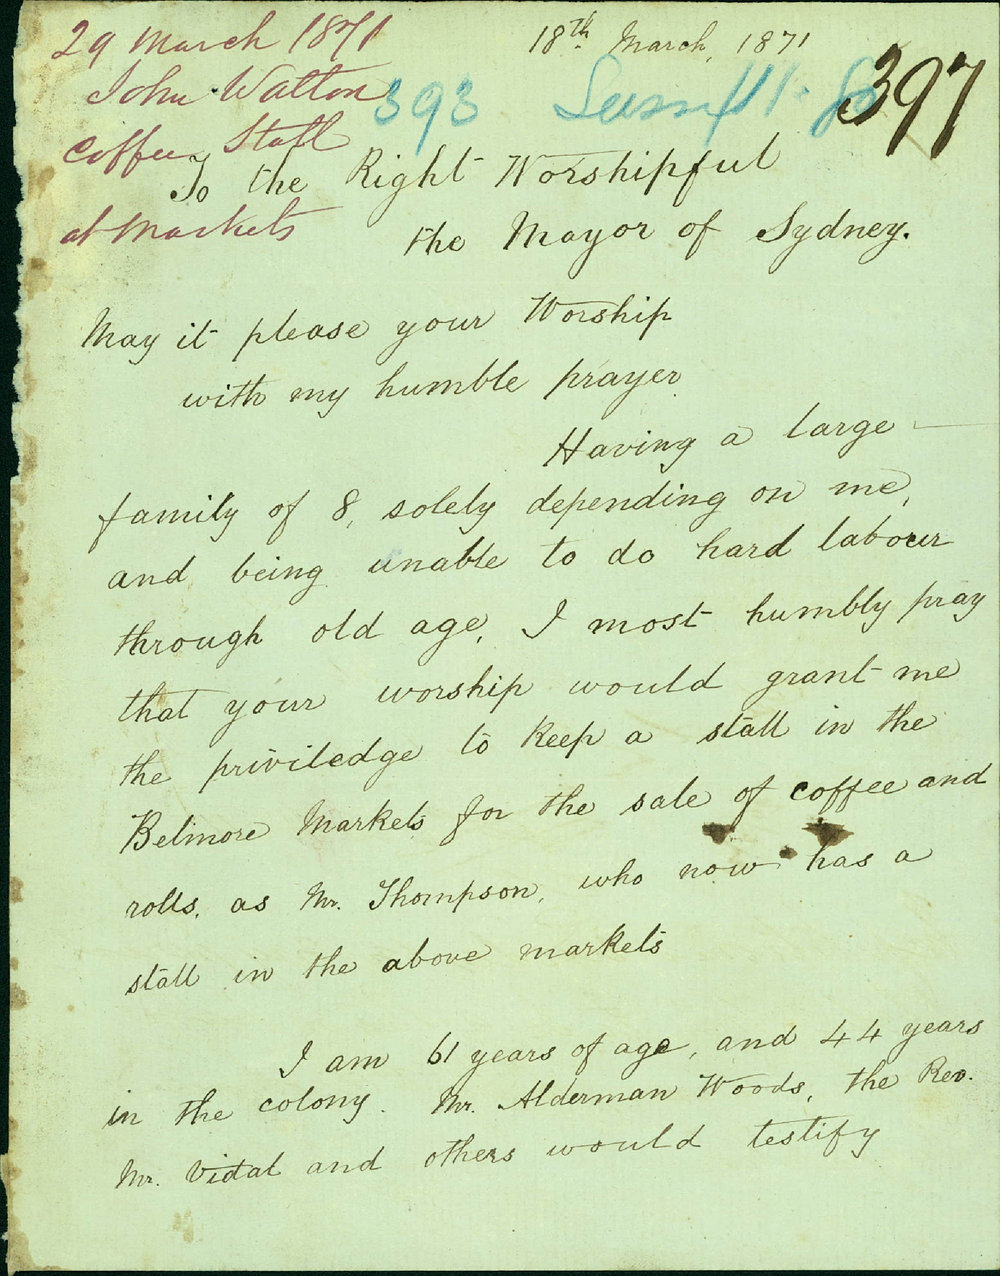 29 March 1871
John Walton
Coffee Stall
at Markets
18th March, 1871
393
397
To the Right Worshipful
the Mayor of Sydney.
May it please your Worship
with my humble prayer
Having a large
family of 8, solely depending on me,
and being unable to do hard labour
through old age, I most humbly pray
that your worship would grant me
the priviledge to keep a stall in the
Belmore Markets for the sale of coffee and
rolls, as Mr. Thompson, who now has a
stall in the above markets
I am 61 years of age, and 44 years
in the colony. Mr. Alderman Woods, the Rev.
Mr. Vidal and others would testify